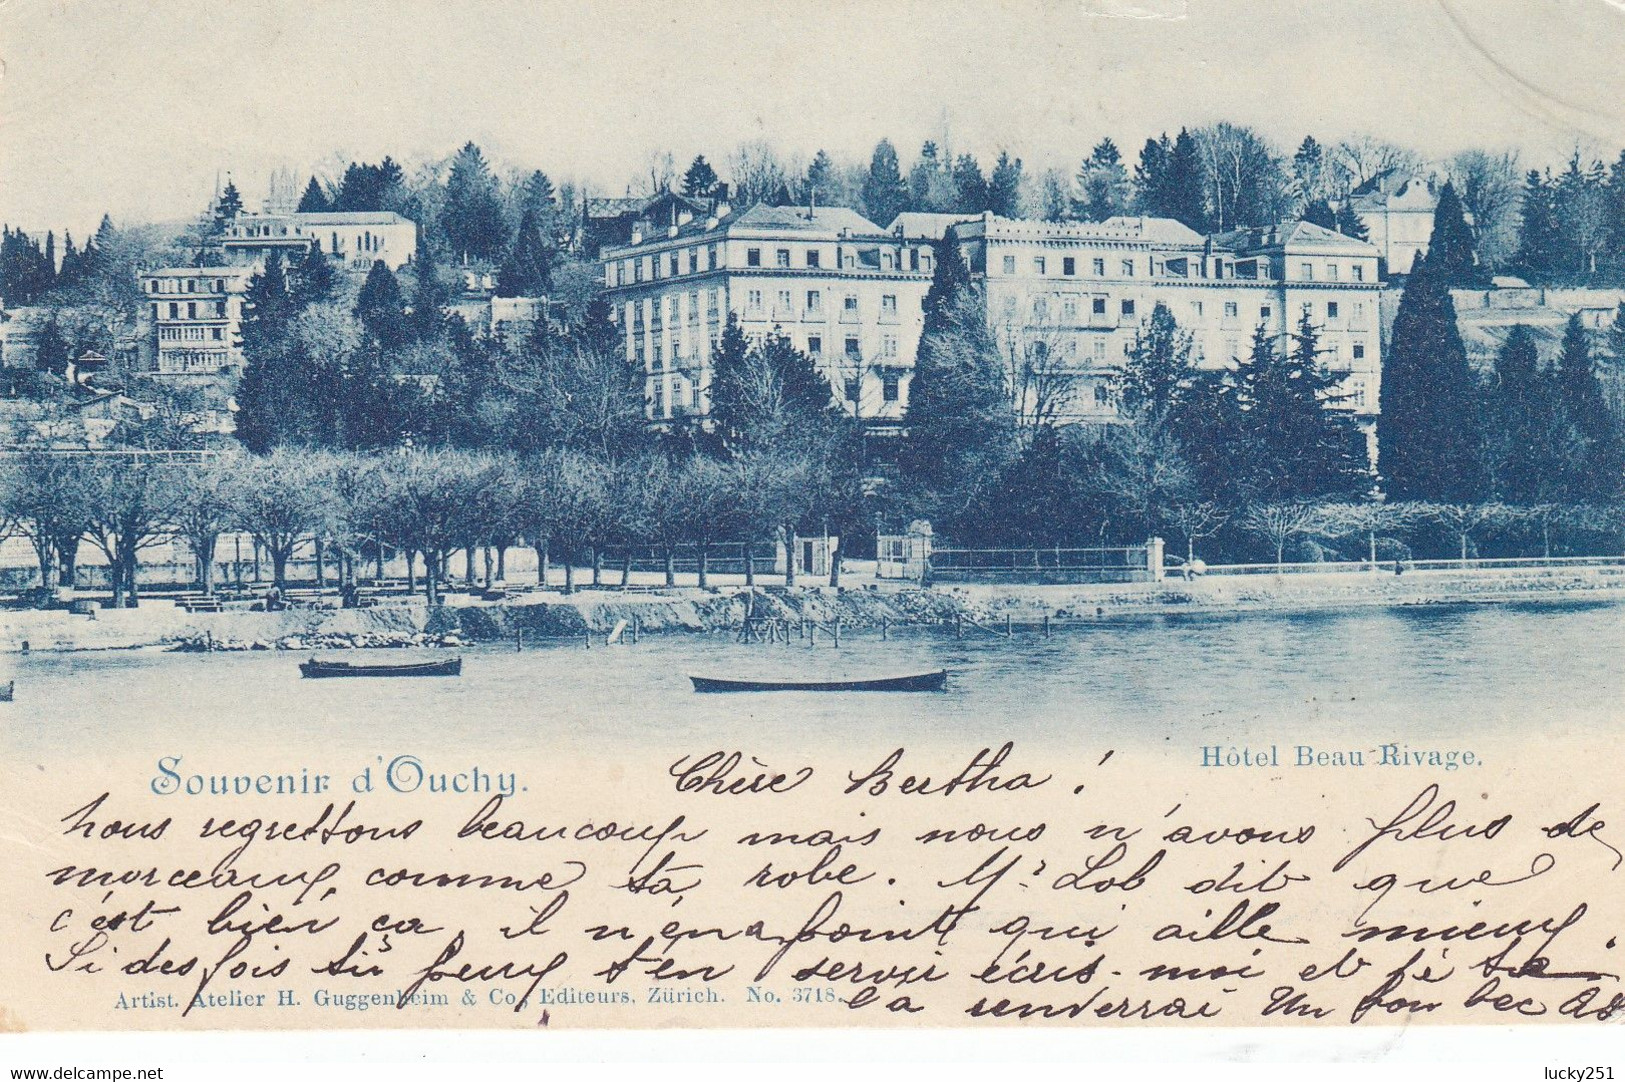 Souvenir d'Ouchy.
Hôtel Beau Rivage.
Chère Bertha !
nous regrettons beaucoup mais nous n'avons plus de
morceaux, comme ta robe. Mr Lob dit que
c'est bien ça, il n'en a point qui aille mieux.
Si des fois tu peux t'en servir écris-moi et je te
l'a renverrai Un bon bec
Artist. Atelier H. Guggenheim & Co., Editeurs, Zürich. No. 3718.
www.delcampe.net
lucky251